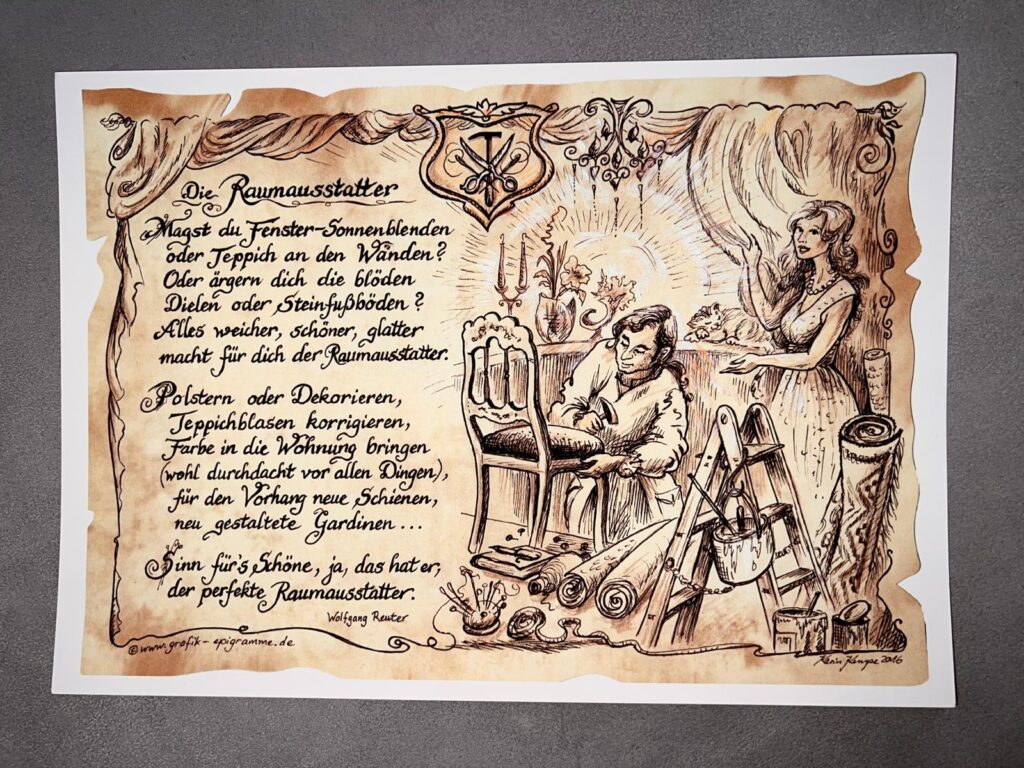 Die Raumausstatter
Magst du Fenster-Sonnenblenden
oder Teppich an den Wänden?
Oder ärgern dich die blöden
Dielen oder Steinfußböden?
Alles weicher, schöner, glatter
macht für dich der Raumausstatter.
Polstern oder Dekorieren,
Teppichblasen korrigieren,
Farbe in die Wohnung bringen
(wohl durchdacht vor allen Dingen),
für den Vorhang neue Schienen,
neu gestaltete Gardinen...
Sinn für's Schöne, ja, das hat er,
der perfekte Raumausstatter.
Wolfgang Reuter
©www.grafik-epigramme.de
Karin Kempse 2016